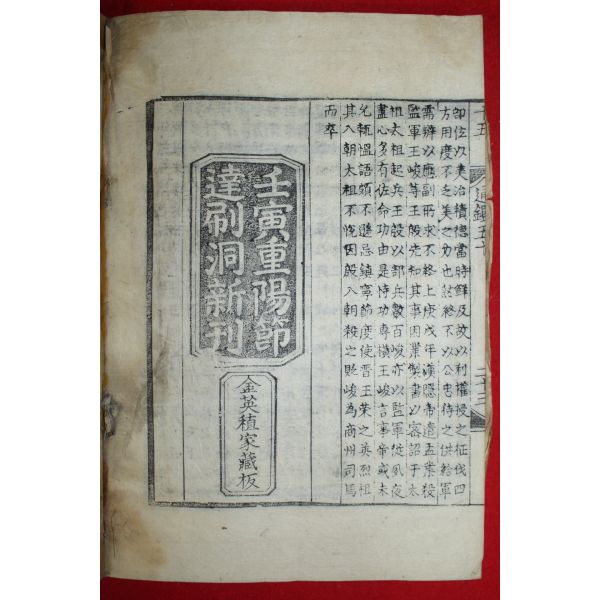 十五
通鑑五十
二十三
即位以來治績德當時鮮及故以利權授之征伐四
方用度不乏美之力也然終不以公忠待之供給軍
需辨以應副所求不終上庚戌年漢隱帝遣孟業殺
監軍王峻等王殷先知其事因業製書以密詔于太
祖太祖起兵王殷以部兵數百峻亦以監軍從夙夜
盡心多有佐命功由是恃功專橫王峻言事帝或未
允輒慍語頗不遜忌鎮寧節度使晋王榮之英烈祖
其入朝太祖不悅因殷入朝殺之貶峻為商州司馬
而卒
壬寅重陽節
達刷洞新刊
金英植家藏板